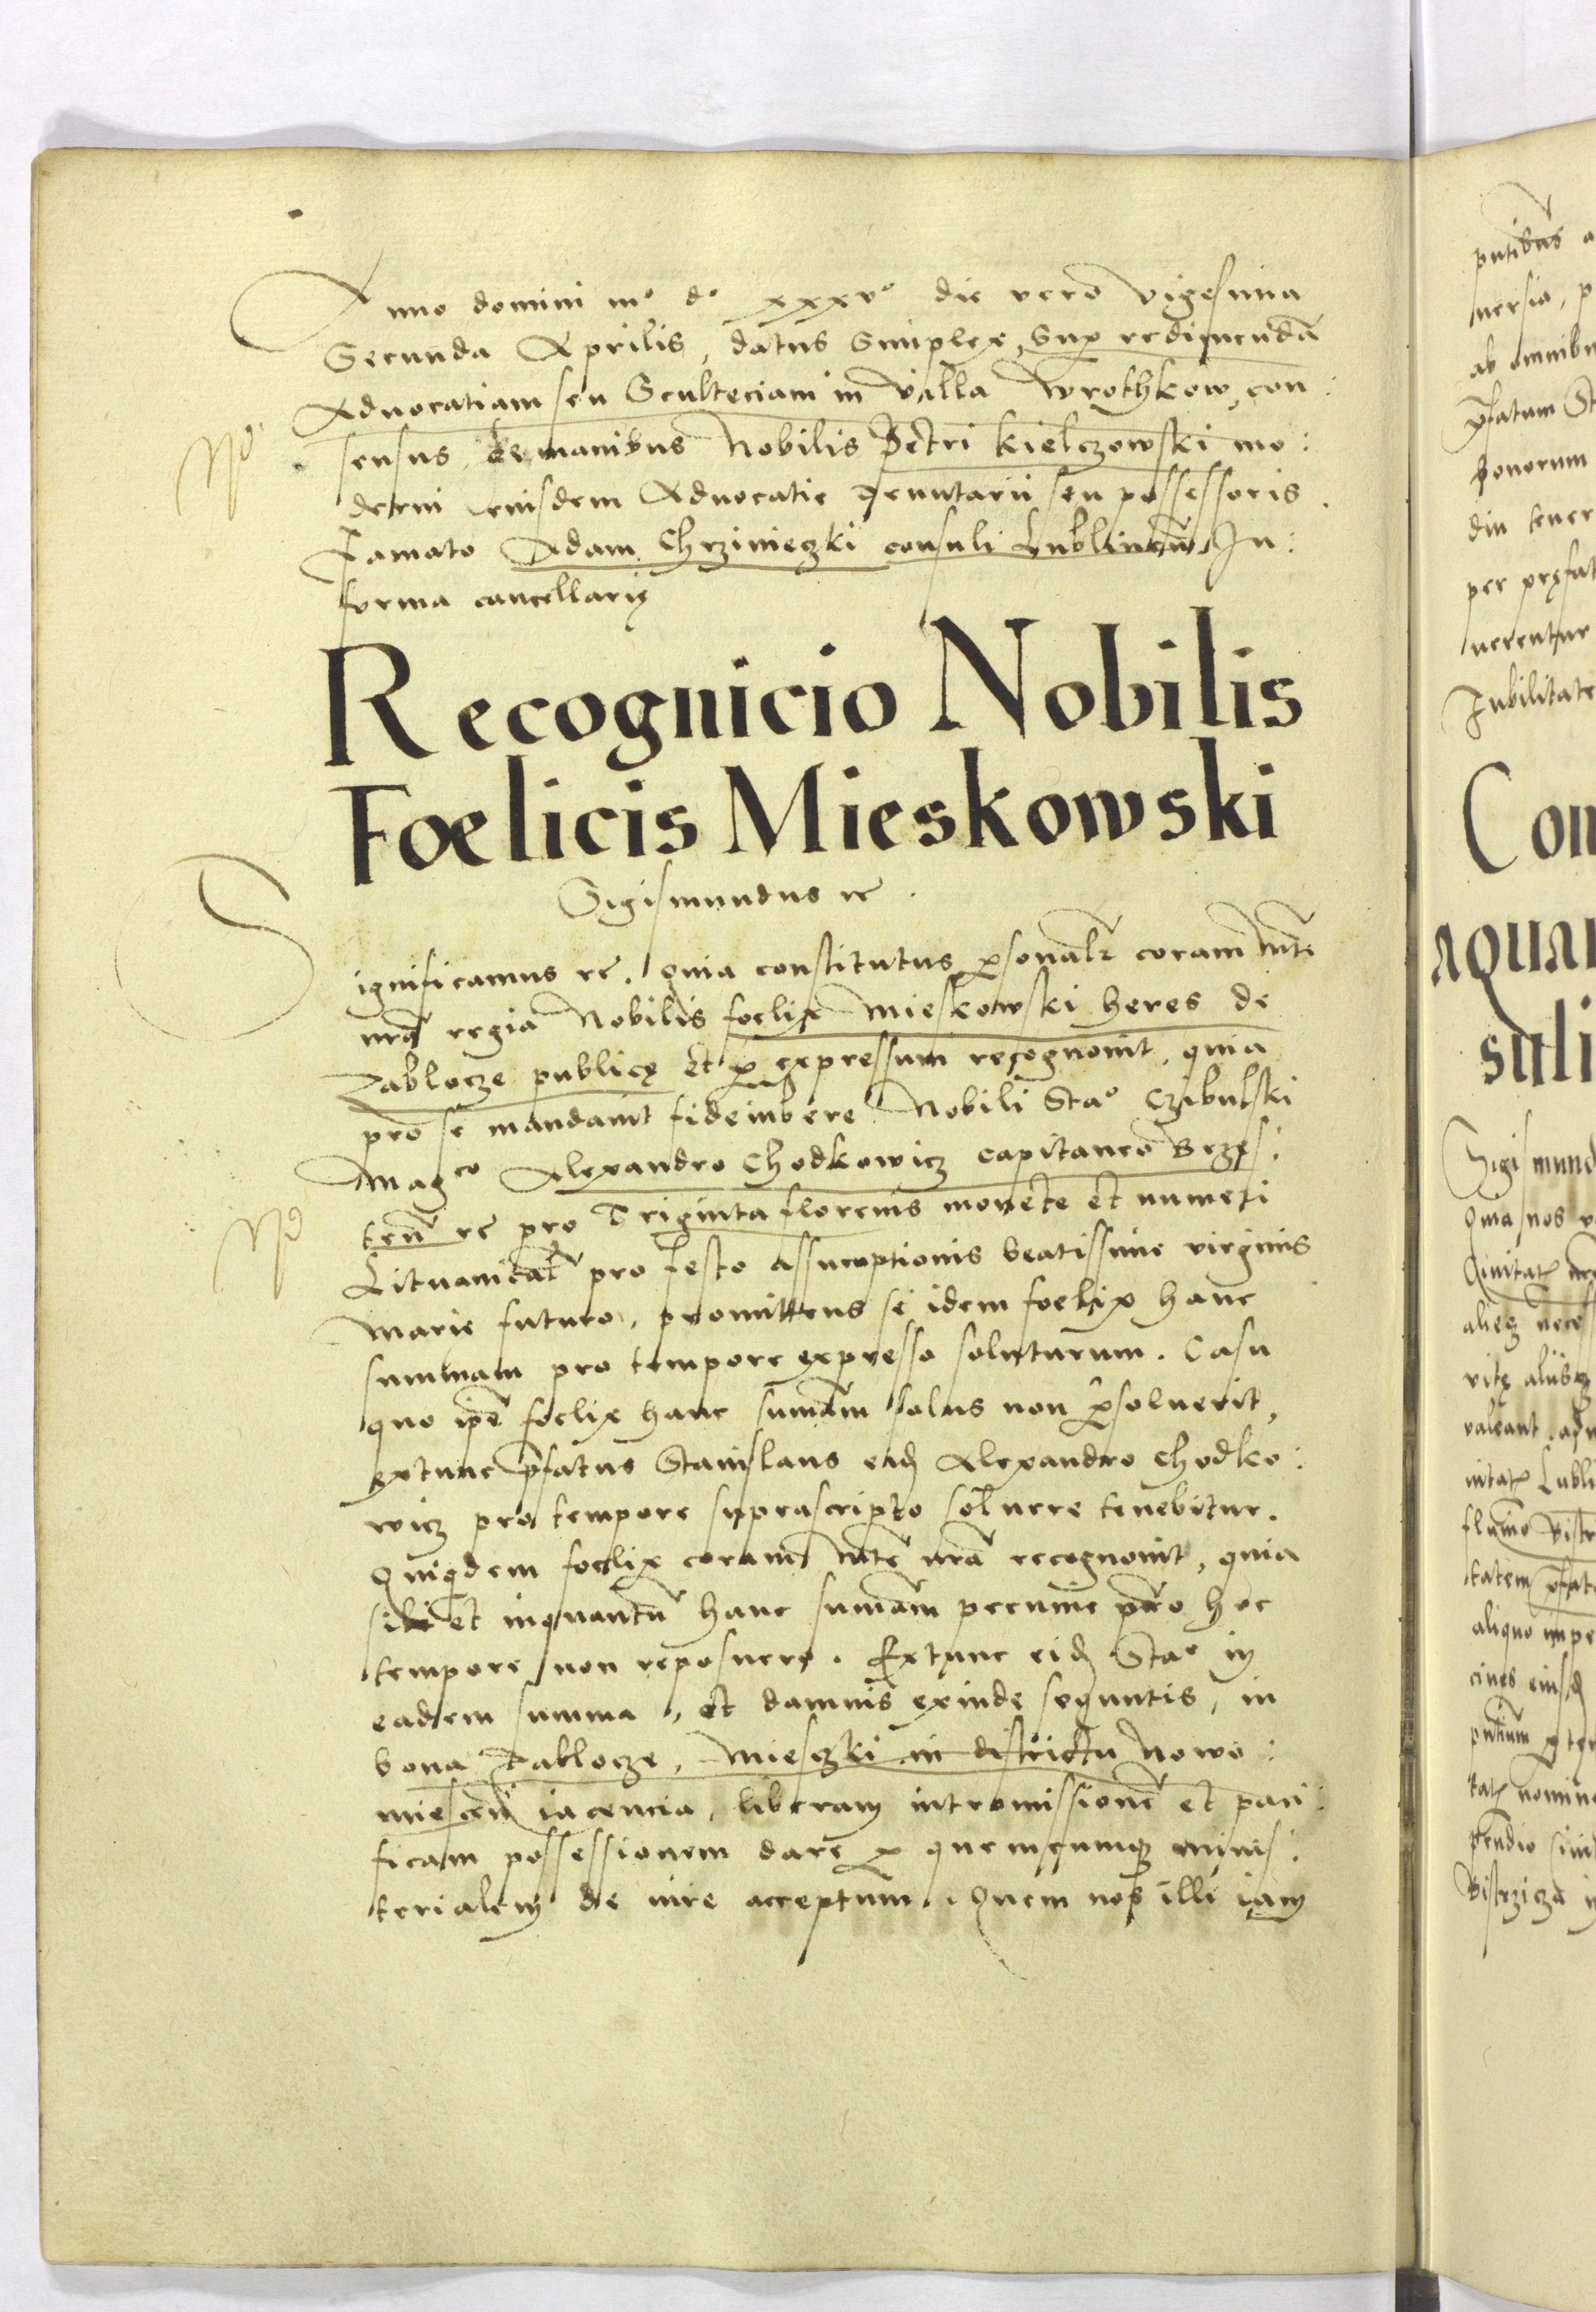 Anno domini mº dº xxxvº die vero vigesima
Secunda Aprilis, datus Simplex, sup redimendā
Advocatiam seu Scultetiam in villa Wrothkow, con:
sensus, de manibus Nobilis Petri Kielczowski mo:
derni eiusdem Advocatie tenutarii seu possessoris.
Famato Adam Chrzinieczki consuli Lublineñ. In:
forma cancellarię
Recognicio Nobilis
Foelicis Mieskowski
Sigismundus rē.
Significamus rē. Quia constitutus psonalr coram Mte
nrā regia Nobilis foelix Mieskowski heres de
Zablocze publicę et p expressum recognovit, quia
pro se mandavit fideiubere Nobili Staº Czibulski
Magco Alexandro Chodkowicz capitaneo Brzes:
teñ rē pro Triginta florenis monete et numeri
Lituanicał pro festo assumptionis beatissime virginis
Marie futuro, promittens se idem foelix hanc
summam pro tempore expresso soluturum. Casu
quo ipē foelix hanc sumām solus non psolverit,
extunc pfatus Stanislaus eid Alexandro Chodko:
wicz pro tempore suprascripto solvere tenebitur.
Quiqdem foelix coram Mte nrā recognovit, quia
si et inquantū hanc sumām pecunie pro hoc
tempore non reposuero. Extunc eid Staº in
eadem summa, et damnis exinde sequntis, in
bona Zablocze, Miesczki in districtu Nowo:
mieseñ iacencia, liberam intromissionē et paci:
ficam possessionem dare p quemcumq minis:
terialem de iure acceptum. Quem nos illi iam
putibus a
versia, p
ab omnibu
pfatum St
bonorum
diu tener
per pręfat
verentur
Jubilitate
Con
aquar
suli
Sigismund
Quia nos v
Civitat nrē
alieq nece
vitę aliisq
valeant, ad
vitat Lubli
flumo Bistr
tatem pfat
aliquo impe
cives eiusd
tat nomine
Bistrzicza in